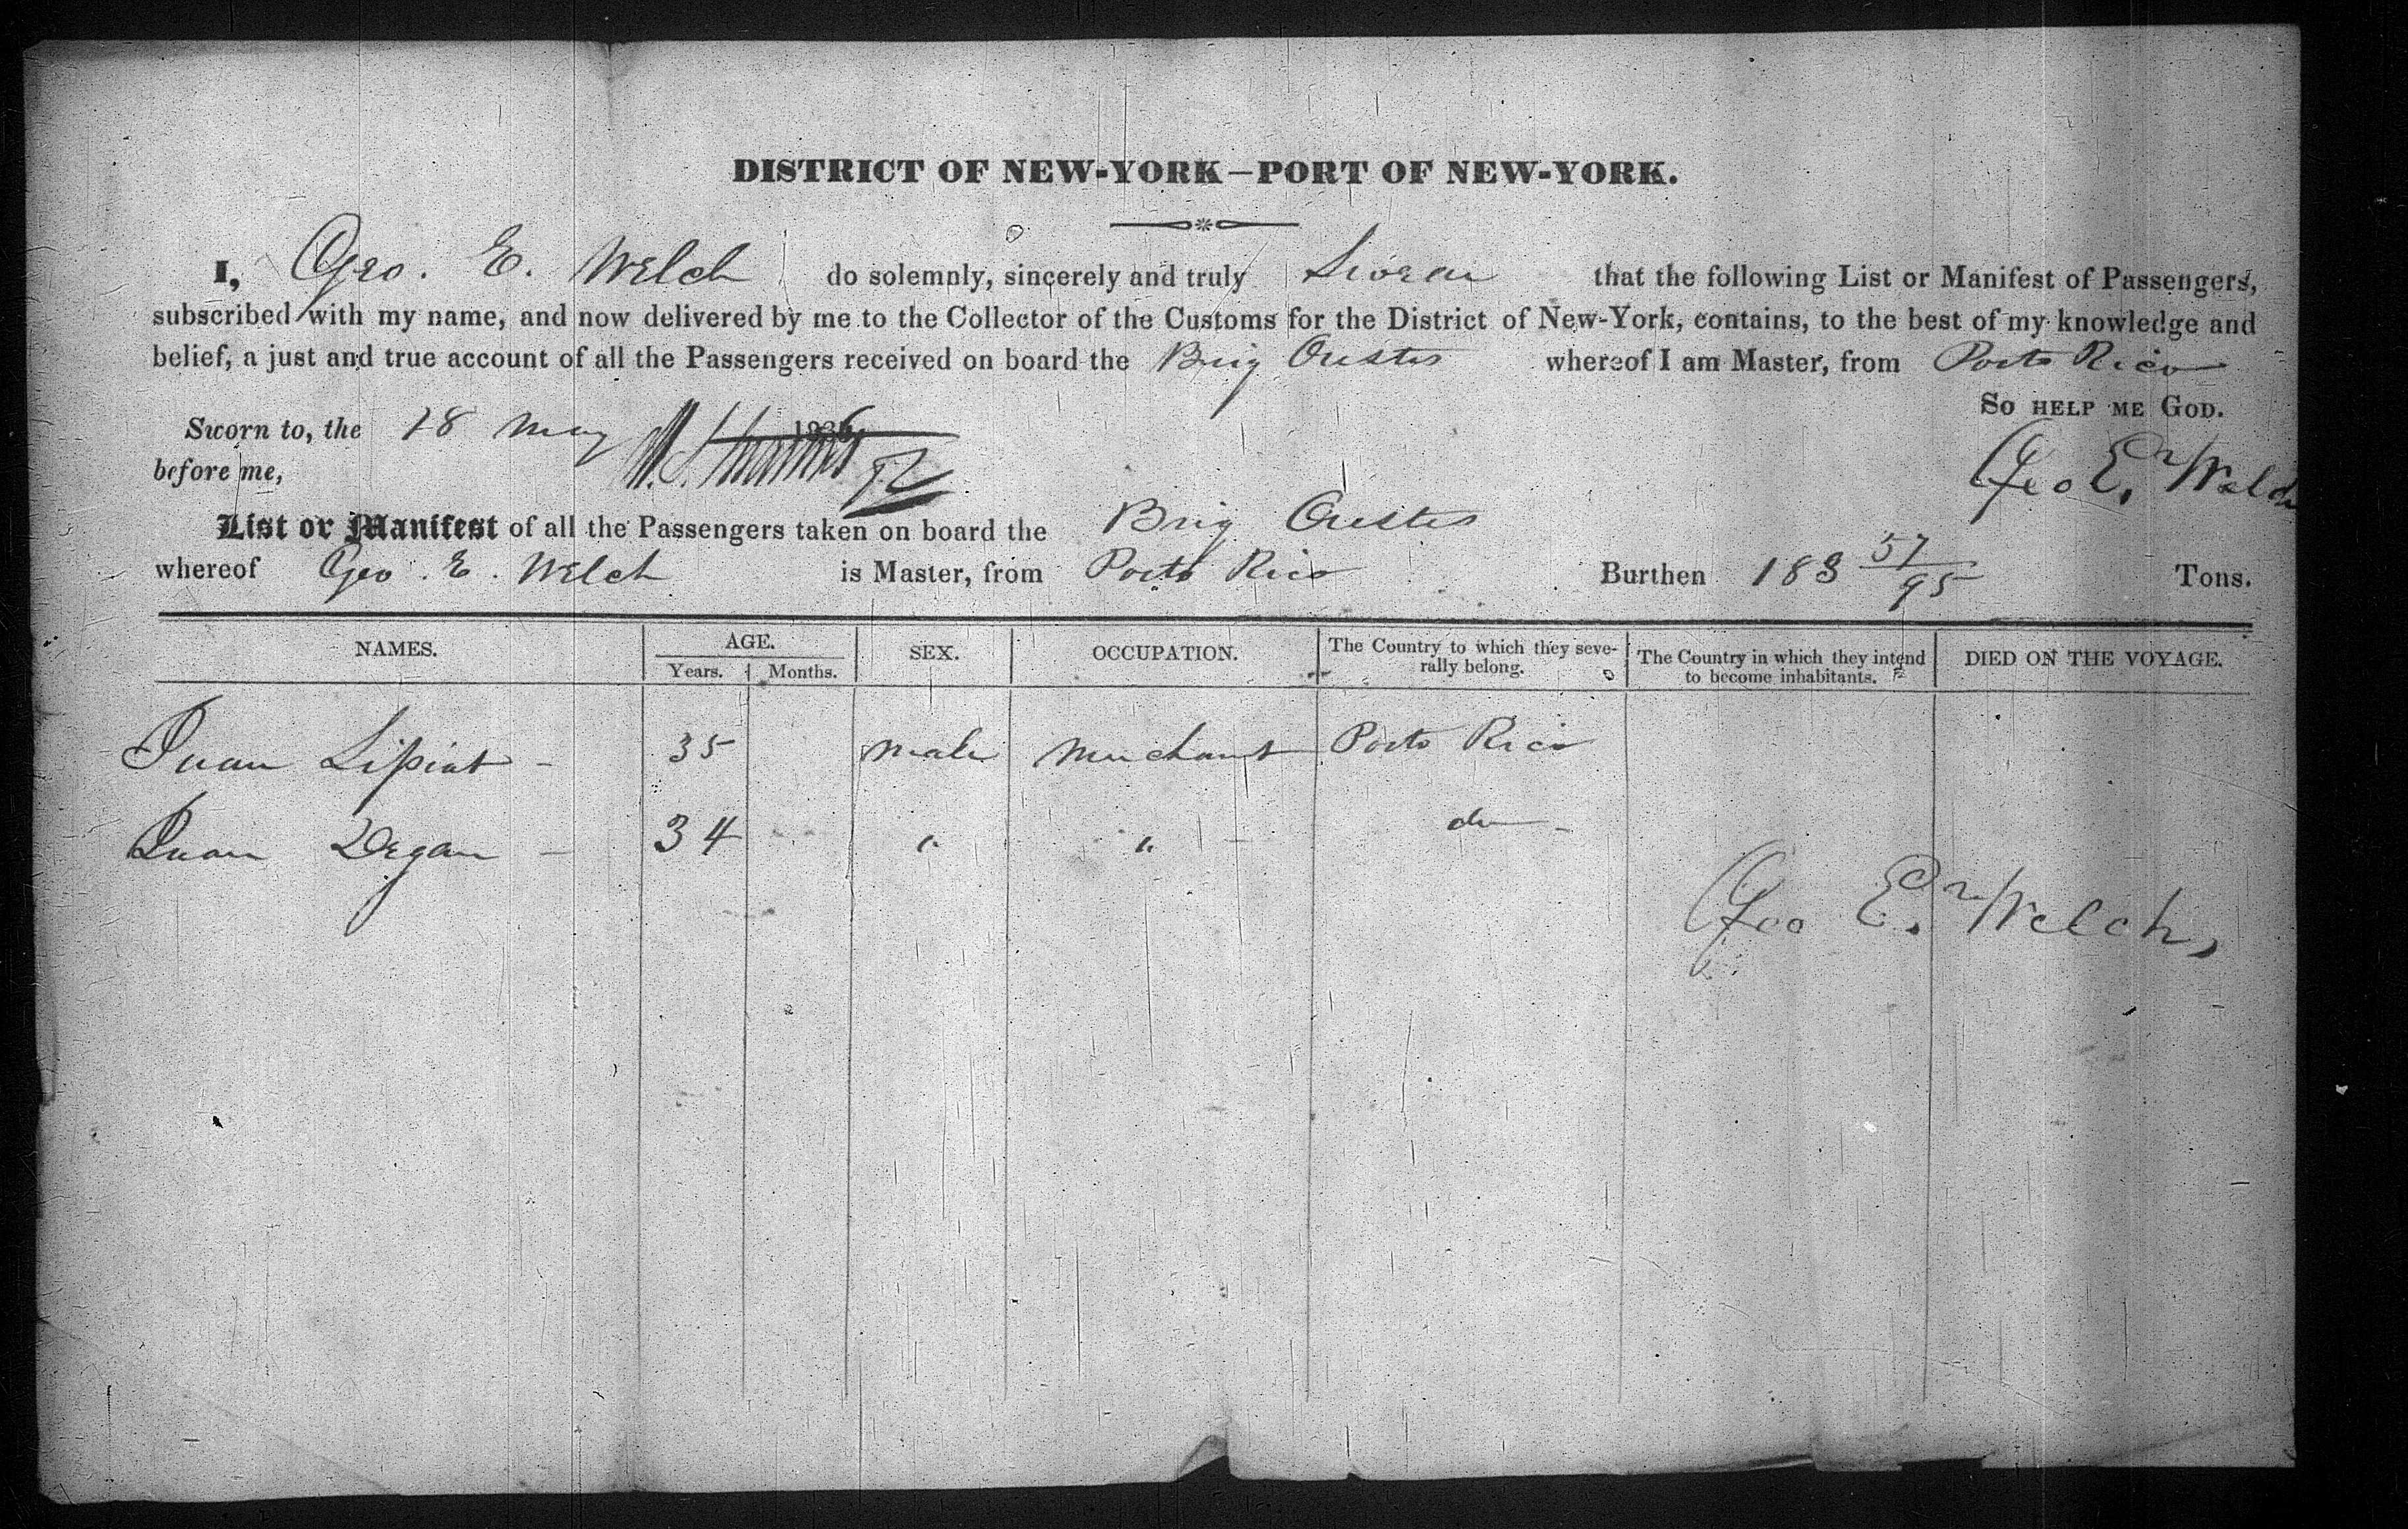 DISTRICT OF NEW-YORK—PORT OF NEW-YORK.
I, Geo. E. Welch do solemnly, sincerely and truly Swear that the following List or Manifest of Passengers,
subscribed with my name, and now delivered by me to the Collector of the Customs for the District of New-York, contains, to the best of my knowledge and
belief, a just and true account of all the Passengers received on board the Brig Orestes whereof I am Master, from Porto Rico
So HELP ME GOD.
Sworn to, the 18 May 1836
before me,
Geo E. Welch
List or Manifest of all the Passengers taken on board the Brig Orestes
whereof Geo. E. Welch is Master, from Porto Rico Burthen 183 57/95 Tons.
NAMES. AGE. SEX. OCCUPATION. The Country to which they seve-rally belong. The Country in which they intend to become inhabitants. DIED ON THE VOYAGE.
Years. Months.
Juan Lipiat - 35 male Merchant Porto Rico
Juan Degan - 34 " " do
Geo E. Welch,